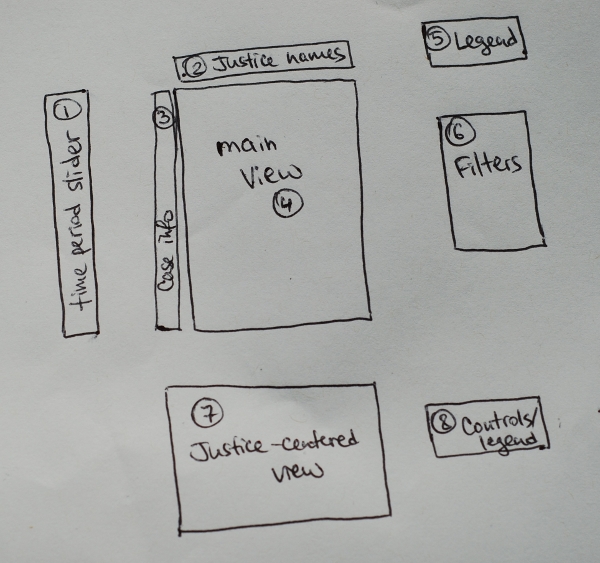 ① time period slider
② Justice names
③ Case info
main
View
④
⑤ Legend
⑥
Filters
⑦
Justice-centered
view
⑧ Controls/
legend